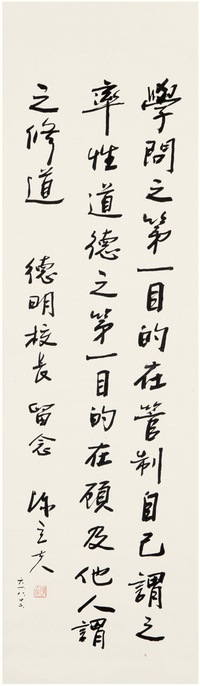 學問之第一目的在管制自己謂之
率性道德之第一目的在顧及他人謂
之修道 德明校長 留念 陳立夫